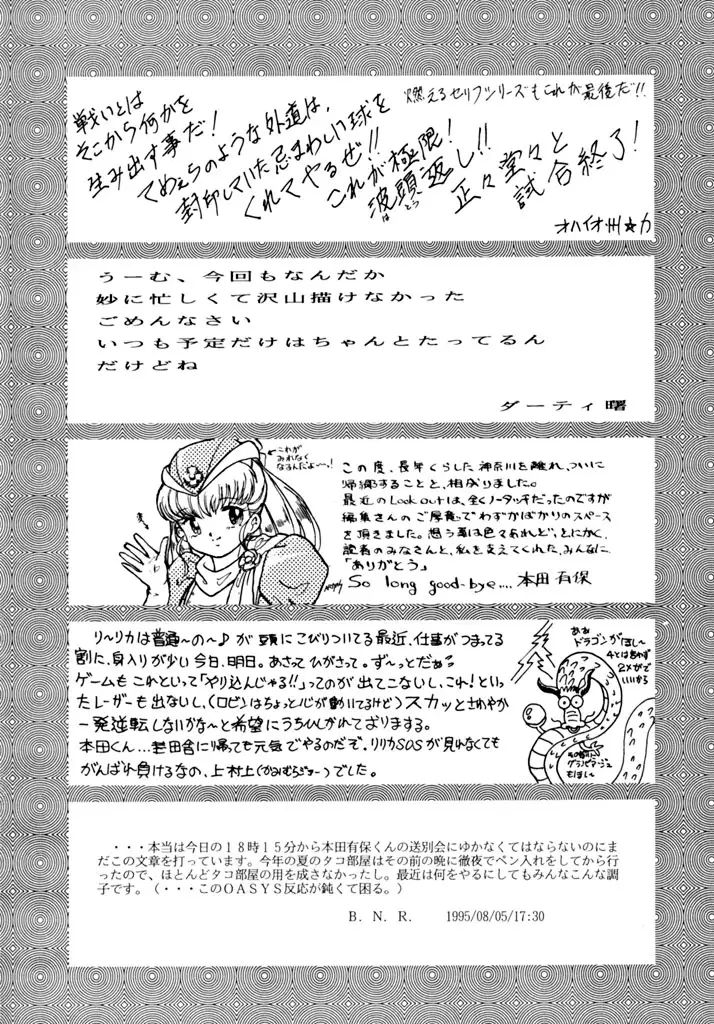 燃えるセリフシリーズもこれが最後だ!!
戦いとは
そこから何かを
生み出す事だ!
てめぇらのような外道は、
封印していた忌まわしい球を
くれてやるぜ!!
これが極限!
波頭返し!!
はとう
正々堂々と
試合終了!
オハイオ州☆力
うーむ、今回もなんだか
妙に忙しくて沢山描けなかった
ごめんなさい
いつも予定だけはちゃんとたってるん
だけどね
ダーティ曙
←これが
みれなく
なるんだよ〜〜!
この度、長年くらした神奈川を離れ、ついに
帰郷することと、相成りました。
最近のLook outは、全くノータッチだったのですが
編集さんのご厚意でわずかばかりのスペース
を頂きました。想う事は色々あれど、とにかく、
読者のみなさんと、私を支えてくれた、みんなに
「ありがとう」
So long good-bye.... 本田有保
リ〜リカは普通〜の〜♪が頭にこびりついてる最近、仕事がつまってる
割に、身入りが少い今日、明日。あさってひがさって。ず〜っとだぁる
ゲームもこれといって「やり込んじゃる!!」ってのが出てこないし、これ!といっ
たレーザーも出ないし、(ロビンはちょっと心が動いてるけど)スカッとさわやか
一発逆転しないかな〜と希望にうちひしがれております。
本田くん...若田舎に帰っても元気でやるのだぞ、リリカSOSが見れなくても
がんばれ負けるなの、上村上(かみむらじょー)でした。
ああ
ドラゴンがほし〜
4とは言わず
2メガで
いいから
その前に
グラパマージュ
もほし〜
・・・本当は今日の18時15分から本田有保くんの送別会にゆかなくてはならないのにま
だこの文章を打っています。今年の夏のタコ部屋はその前の晩に徹夜でペン入れをしてから行
ったので、ほとんどタコ部屋の用を成さなかったし。最近は何をやるにしてもみんなこんな調
子です。(・・・このOASYS反応が鈍くて困る。)
B.N.R. 1995/08/05/17:30